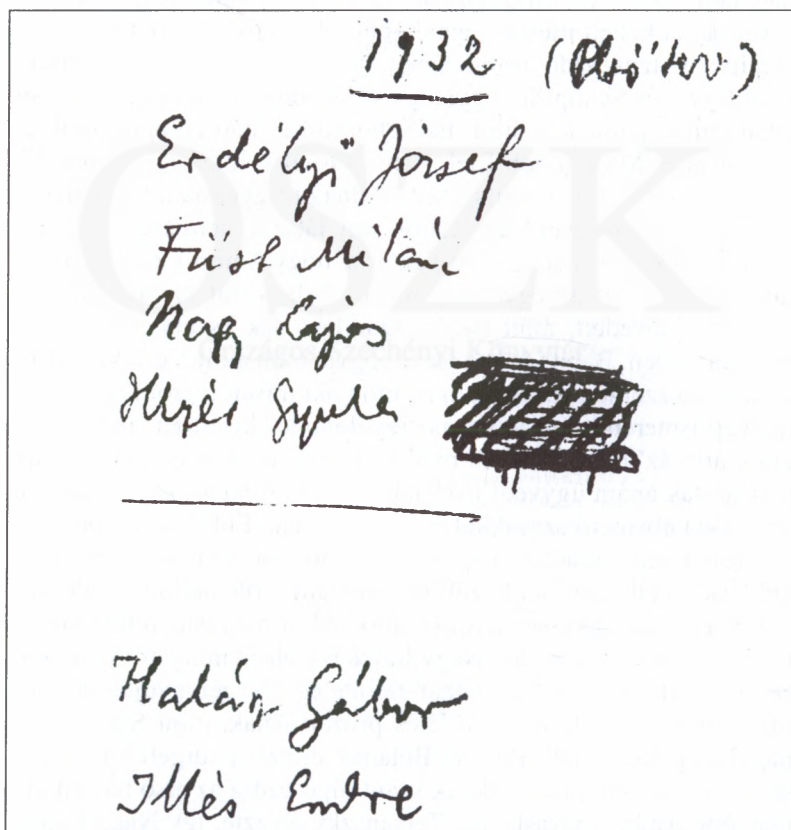 1932 (Első terv)
Erdélyi József
Füst Milán
Nagy Lajos
Illyés Gyula
Halász Gábor
Illés Endre
OSZK
Országos Széchényi Könyvtár